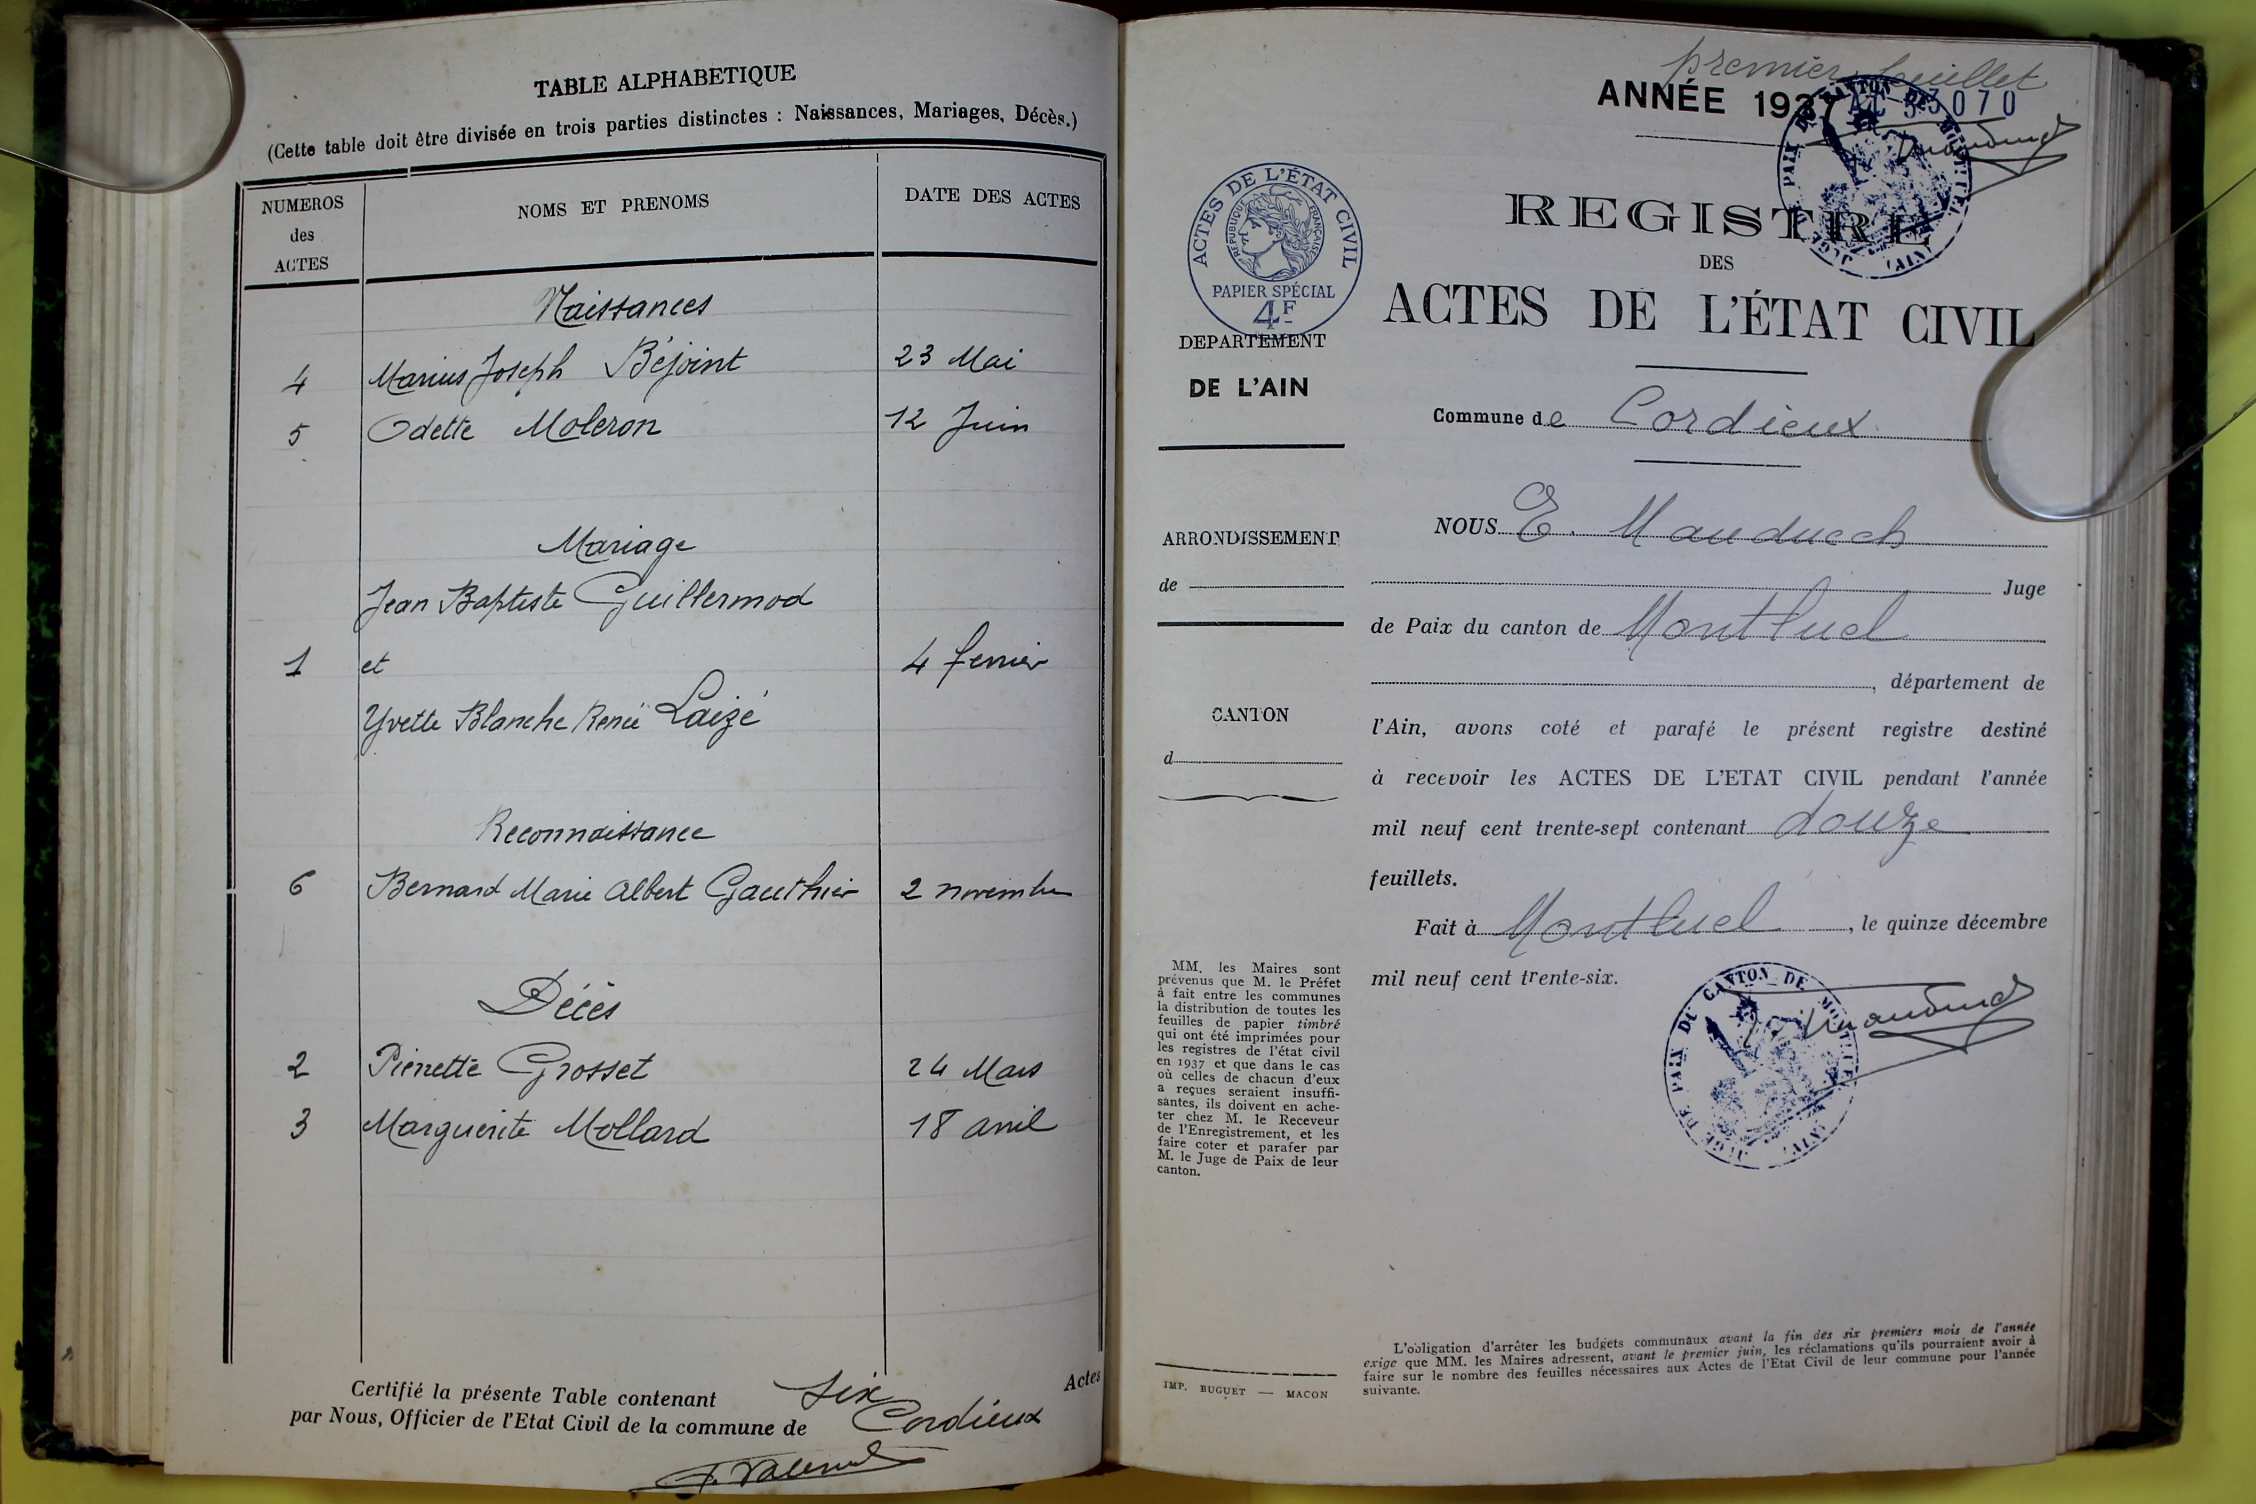 TABLE ALPHABETIQUE
(Cette table doit être divisée en trois parties distinctes : Naissances, Mariages, Décès.)
NUMEROS
des
ACTES
NOMS ET PRENOMS
DATE DES ACTES
Naissances
4 Marius Joseph Béjoint 23 Mai
5 Odette Moleron 12 Juin
Mariage
Jean Baptiste Guillermod
1 et 4 fevrier
Yvette Blanche Renée Laizé
Reconnaissance
6 Bernard Marie Albert Gauthier 2 novembre
Décès
2 Pierrette Grosset 24 Mars
3 Marguerite Mollard 18 avril
Certifié la présente Table contenant six Actes
par Nous, Officier de l'Etat Civil de la commune de Cordieux
premier feuillet
ANNÉE 1937
3070
ACTES DE L'ÉTAT CIVIL
RÉPUBLIQUE FRANÇAISE
PAPIER SPÉCIAL
4F
DEPARTEMENT
DE L'AIN
ARRONDISSEMENT
de
CANTON
d
MM. les Maires sont
prévenus que M. le Préfet
à fait entre les communes
la distribution de toutes les
feuilles de papier timbré
qui ont été imprimées pour
les registres de l'état civil
en 1937 et que dans le cas
où celles de chacun d'eux
a reçues seraient insuffi-
santes, ils doivent en ache-
ter chez M. le Receveur
de l'Enregistrement, et les
faire coter et parafer par
M. le Juge de Paix de leur
canton.
IMP. BUGUET — MACON
REGISTRE
DES
ACTES DE L'ÉTAT CIVIL
Commune de Cordieux
NOUS E. Mauduech
Juge
de Paix du canton de Montluel
, département de
l'Ain, avons coté et parafé le présent registre destiné
à recevoir les ACTES DE L'ETAT CIVIL pendant l'année
mil neuf cent trente-sept contenant douze
feuillets.
Fait à Montluel , le quinze décembre
mil neuf cent trente-six.
JUGE DE PAIX DU CANTON DE MONTLUEL (AIN)
L'obligation d'arrêter les budgets communaux avant la fin des six premiers mois de l'année
exige que MM. les Maires adressent, avant le premier juin, les réclamations qu'ils pourraient avoir à
faire sur le nombre des feuilles nécessaires aux Actes de l'Etat Civil de leur commune pour l'année
suivante.